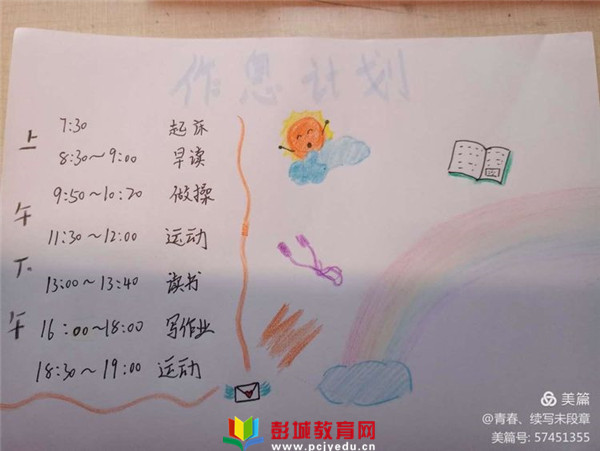 作息计划
上午
7:30 起床
8:30～9:00 早读
9:50～10:70 做操
11:30～12:00 运动
下午
13:00～13:40 读书
16:00～18:00 写作业
18:30～19:00 运动
彭城教育网
www.pcjyedu.cn
美篇
@青春、续写未段章
美篇号: 57451355